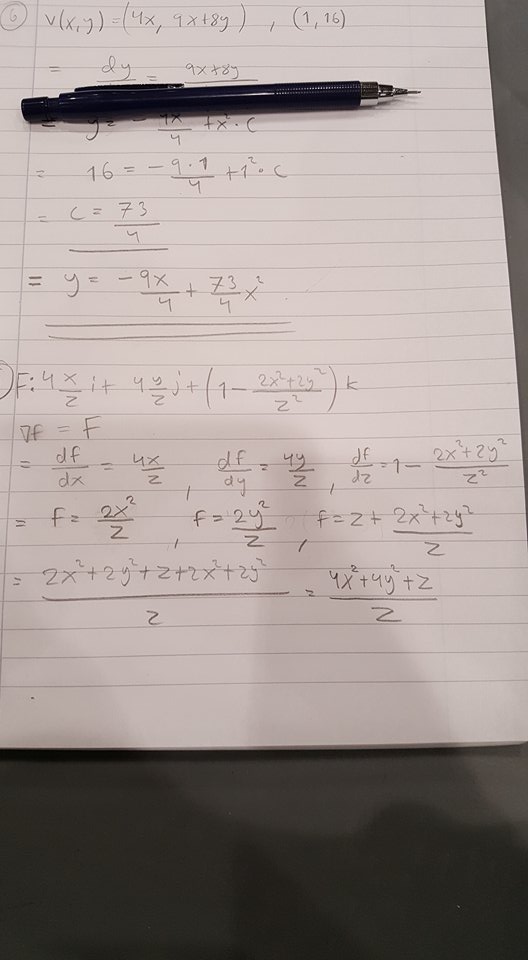 6 v(x,y) = (4x, 9x+8y) , (1,16)
= dy = 9x+8y
y = - 9x/4 + x² · c
= 16 = - 9·1/4 + 1² · c
= c = 73/4
= y = -9x/4 + 73/4 x²
F: 4 x/z i + 4 y/z j + (1 - 2x²+2y²/z²) k
∇f = F
= df/dx = 4x/z , df/dy = 4y/z , df/dz = 1 - 2x²+2y²/z²
= f = 2x²/z , f = 2y²/z , f = z + 2x²+2y²/z
= 2x²+2y²+z+2x²+2y²/z = 4x²+4y²+z/z